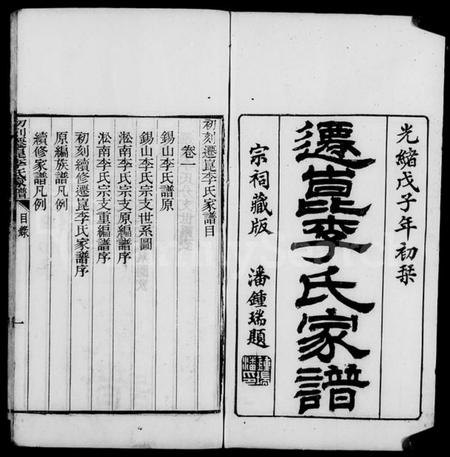 光緒戊子年初栞
遷崑李氏家譜
宗祠藏版
潘鍾瑞題
初刻遷崑李氏家譜目
卷一
錫山李氏譜原
錫山李氏宗支世系圖
淞南李氏宗支原編譜序
淞南李氏宗支重編譜序
初刻續修遷崑李氏家譜序
原編族譜凡例
續修家譜凡例
初刻遷崑李氏家譜 目錄 一